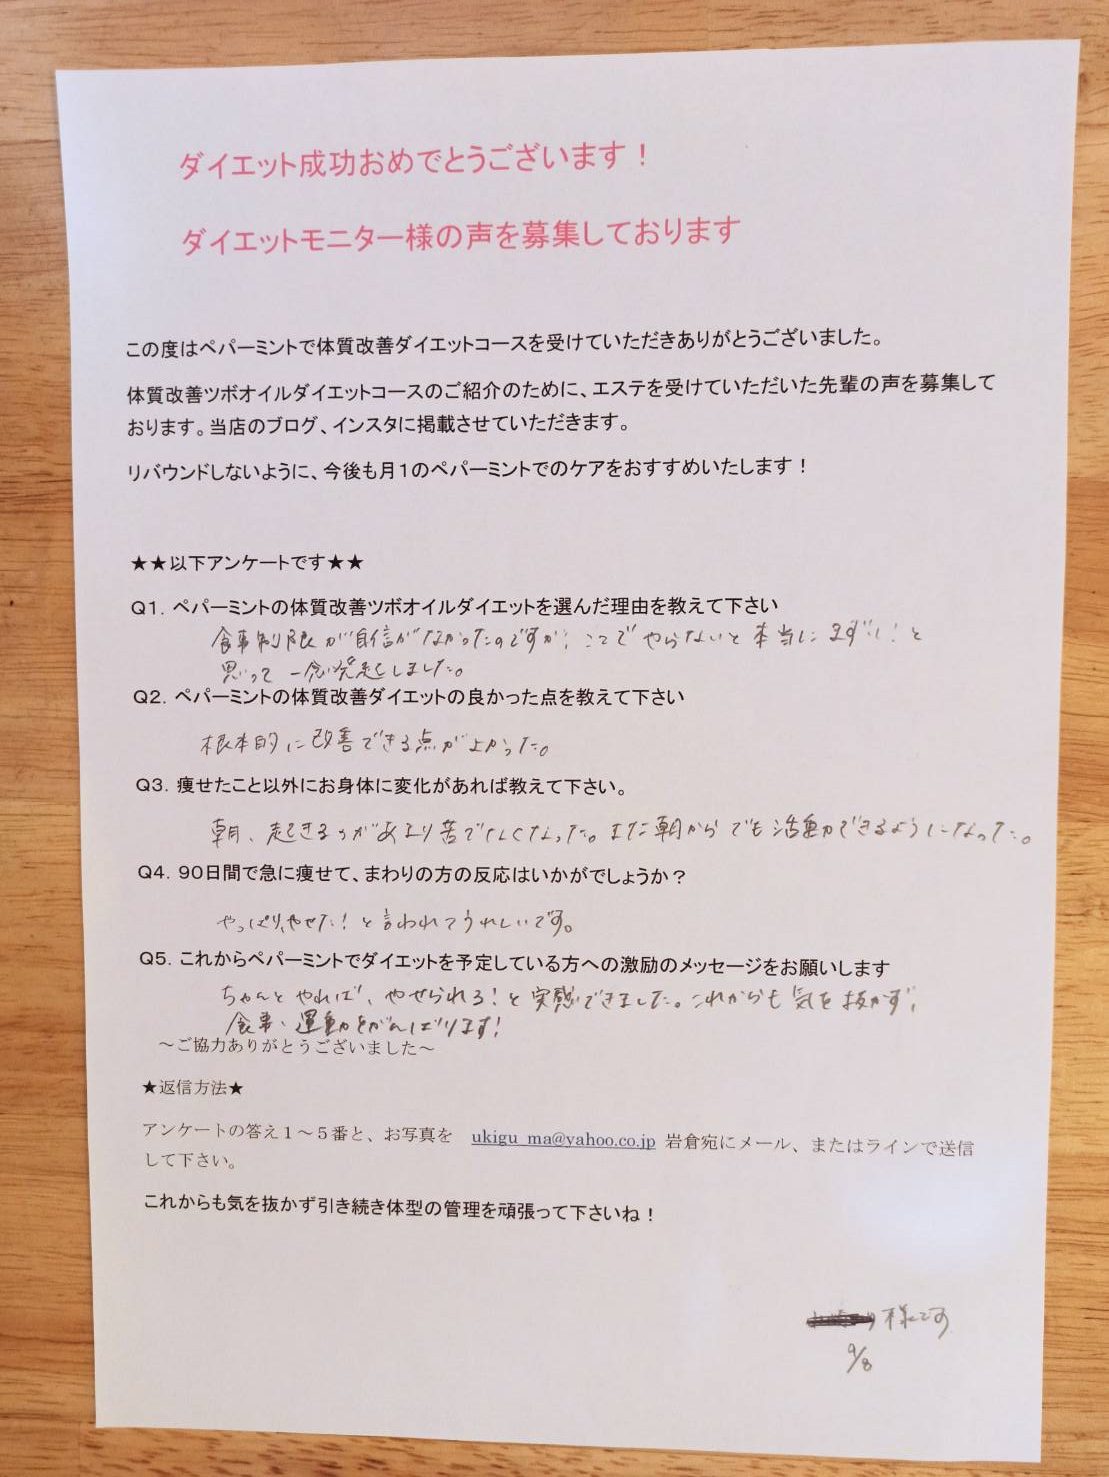 ダイエット成功おめでとうございます！
ダイエットモニター様の声を募集しております
この度はペパーミントで体質改善ダイエットコースを受けていただきありがとうございました。
体質改善ツボオイルダイエットコースのご紹介のために、エステを受けていただいた先輩の声を募集して
おります。当店のブログ、インスタに掲載させていただきます。
リバウンドしないように、今後も月１のペパーミントでのケアをおすすめいたします！
★★以下アンケートです★★
Q1．ペパーミントの体質改善ツボオイルダイエットを選んだ理由を教えて下さい
食事制限が自信がなかったのですが、ここでやらないと本当にまずい！と
思って一念発起しました。
Q2．ペパーミントの体質改善ダイエットの良かった点を教えて下さい
根本的に改善できる点がよかった。
Q3．痩せたこと以外にお身体に変化があれば教えて下さい。
朝、起きるのがあまり苦でなくなった。また朝からでも活動できるようになった。
Q4．90日間で急に痩せて、まわりの方の反応はいかがでしょうか？
やっぱりやせた！と言われてうれしいです。
Q5．これからペパーミントでダイエットを予定している方への激励のメッセージをお願いします
ちゃんとやれば、やせられる！と実感できました。これからも気を抜かず、
食事、運動をがんばります！
～ご協力ありがとうございました～
★返信方法★
アンケートの答え１～５番と、お写真を ukigu_ma@yahoo.co.jp 岩倉宛にメール、またはラインで送信
して下さい。
これからも気を抜かず引き続き体型の管理を頑張って下さいね！
様です
9/8